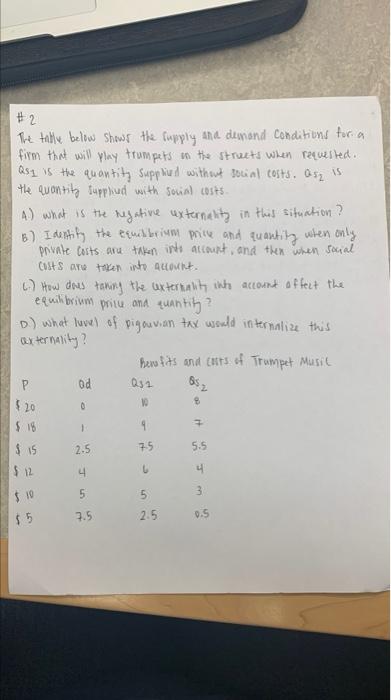 # 2
The table below shows the supply and demand conditions for a
firm that will play trumpets on the streets when requested.
Qs1 is the quantity supplied without social costs. Qs2 is
the quantity supplied with social costs.
A.) what is the negative externality in this situation?
B.) Identify the equilibrium price and quantity when only
private costs are taken into account, and then when social
costs are taken into account.
C.) How does taking the externality into account affect the
equilibrium price and quantity?
D.) what level of pigouvian tax would internalize this
externality?
Benefits and costs of Trumpet Music
P Qd Qs1 Qs2
$ 20 0 10 8
$ 18 1 9 7
$ 15 2.5 7.5 5.5
$ 12 4 6 4
$ 10 5 5 3
$ 5 7.5 2.5 0.5